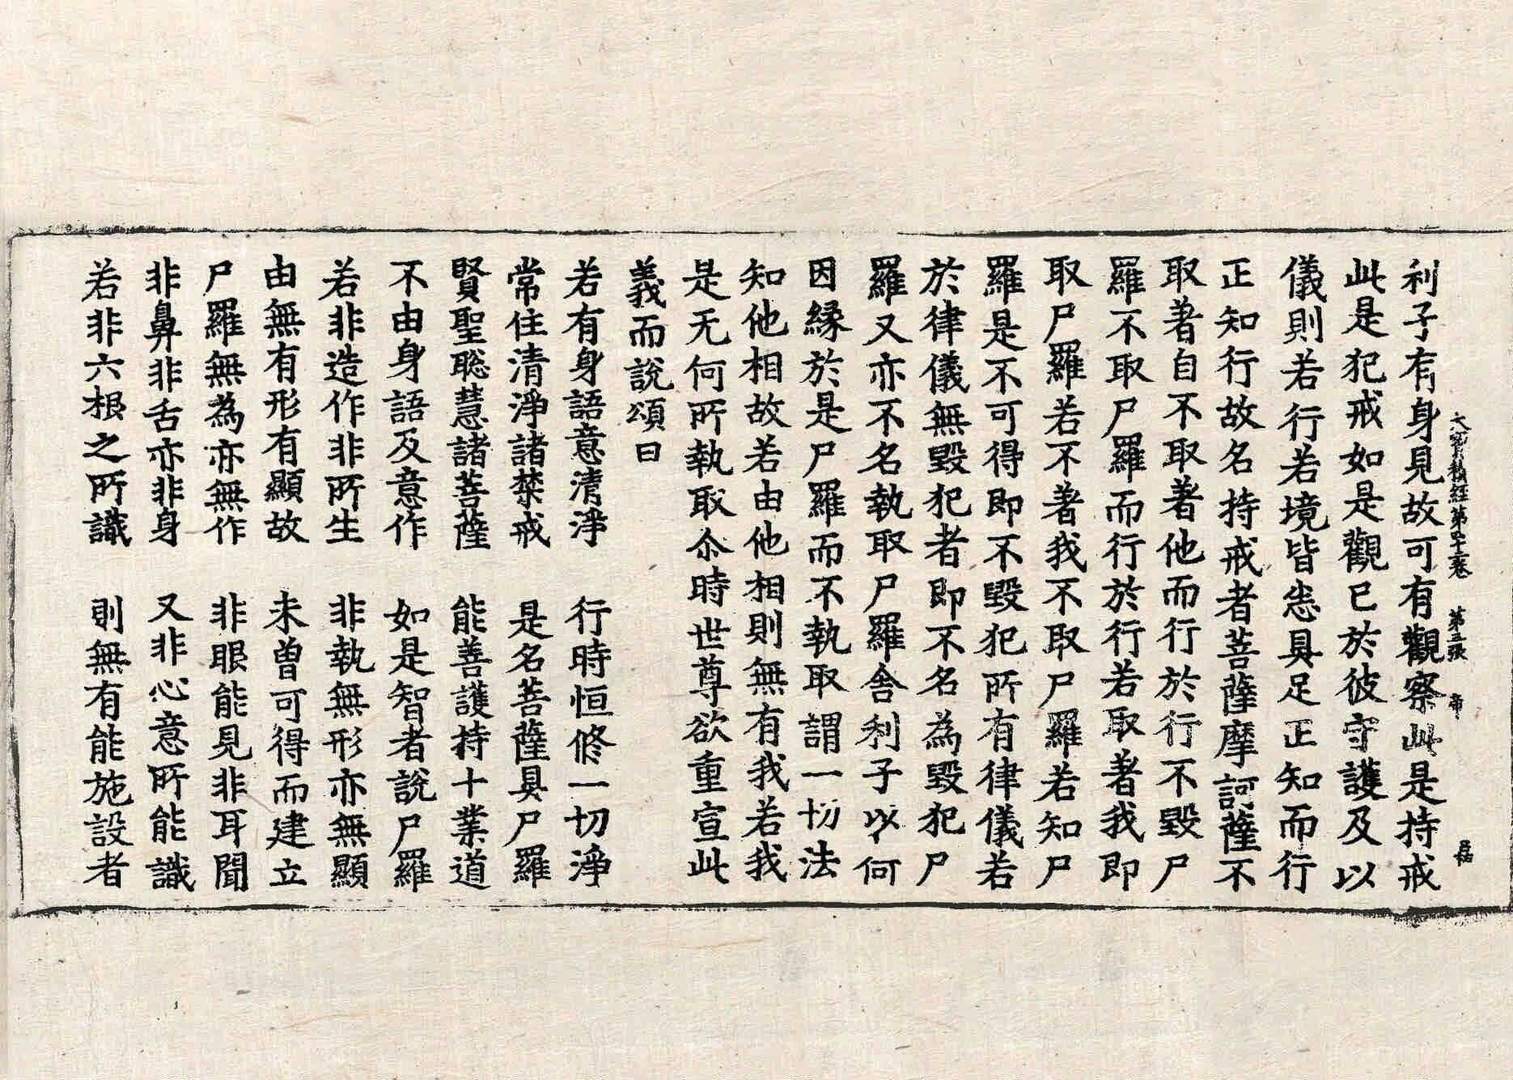 大寶積經第四十二卷　第三張　帝
利子有身見故可有觀察此是持戒
此是犯戒如是觀已於彼守護及以
儀則若行若境皆悉具足正知而行
正知行故名持戒者菩薩摩訶薩不
取著自不取著他而行於行不毀尸
羅不取尸羅而行於行若取著我即
取尸羅若不著我不取尸羅若知尸
羅是不可得即不毀犯所有律儀若
於律儀無毀犯者即不名為毀犯尸
羅又亦不名執取尸羅舍利子以何
因緣於是尸羅而不執取謂一切法
知他相故若由他相則無有我若我
是无何所執取尒時世尊欲重宣此
義而說頌曰
若有身語意清淨　行時恒修一切淨
常住清淨諸禁戒　是名菩薩具尸羅
賢聖聡慧諸菩薩　能善護持十業道
不由身語及意作　如是智者說尸羅
若非造作非所生　非執無形亦無顯
由無有形有顯故　未曾可得而建立
尸羅無為亦無作　非眼能見非耳聞
非鼻非舌亦非身　又非心意所能識
若非六根之所識　則無有能施設者